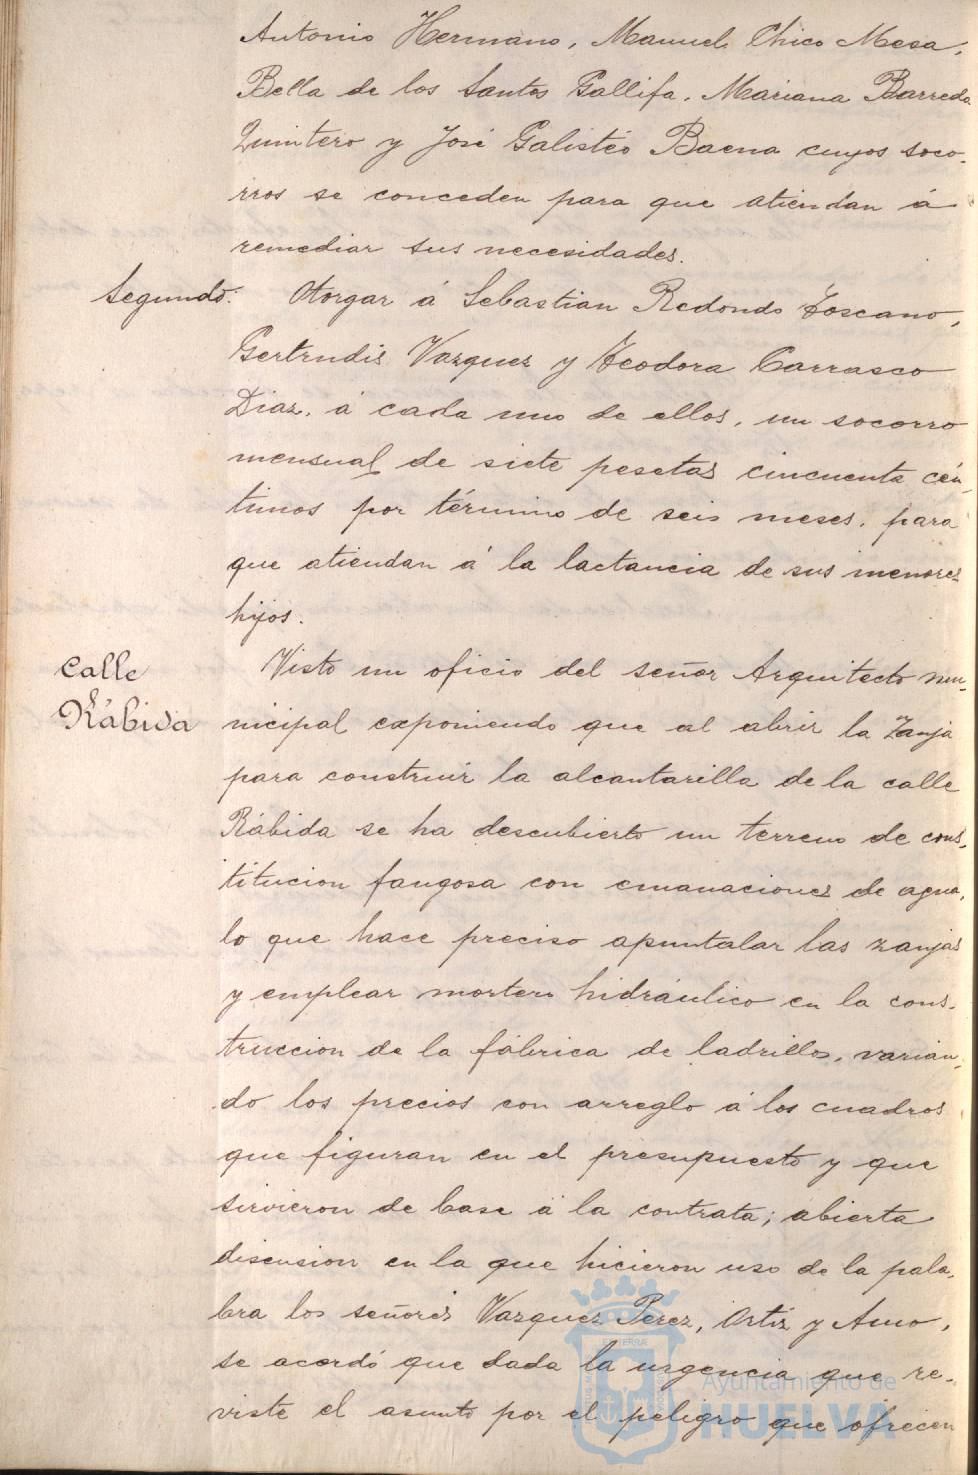 Antonio Hermano, Manuel Chico Mesa,
Bella de los Santos Gallifa, Mariana Barreda
Quintero y José Galisteo Baena cuyos soco-
rros se conceden para que atiendan á
remediar sus necesidades.
Segundo. Otorgar á Sebastian Redondo Toscano,
Gertrudis Vazquez y Teodora Carrasco
Diaz, á cada uno de ellos, un socorro
mensual de siete pesetas cincuenta cén-
timos por término de seis meses, para
que atiendan á la lactancia de sus menores
hijos.
Calle
Rábida
Visto un oficio del señor Arquitecto mu-
nicipal exponiendo que al abrir la zanja
para construir la alcantarilla de la calle
Rábida se ha descubierto un terreno de cons-
titucion fangosa con emanaciones de agua,
lo que hace preciso apuntalar las zanjas
y emplear mortero hidráulico en la cons-
truccion de la fábrica de ladrillos, varian-
do los precios con arreglo á los cuadros
que figuran en el presupuesto y que
sirvieron de base á la contrata; abierta
discusion en la que hicieron uso de la pala-
bra los señores Vazquez Perez, Ortiz y Amo,
se acordó que dada la urgencia que re-
viste el asunto por el peligro que ofrecen
Ayuntamiento de
HUELVA